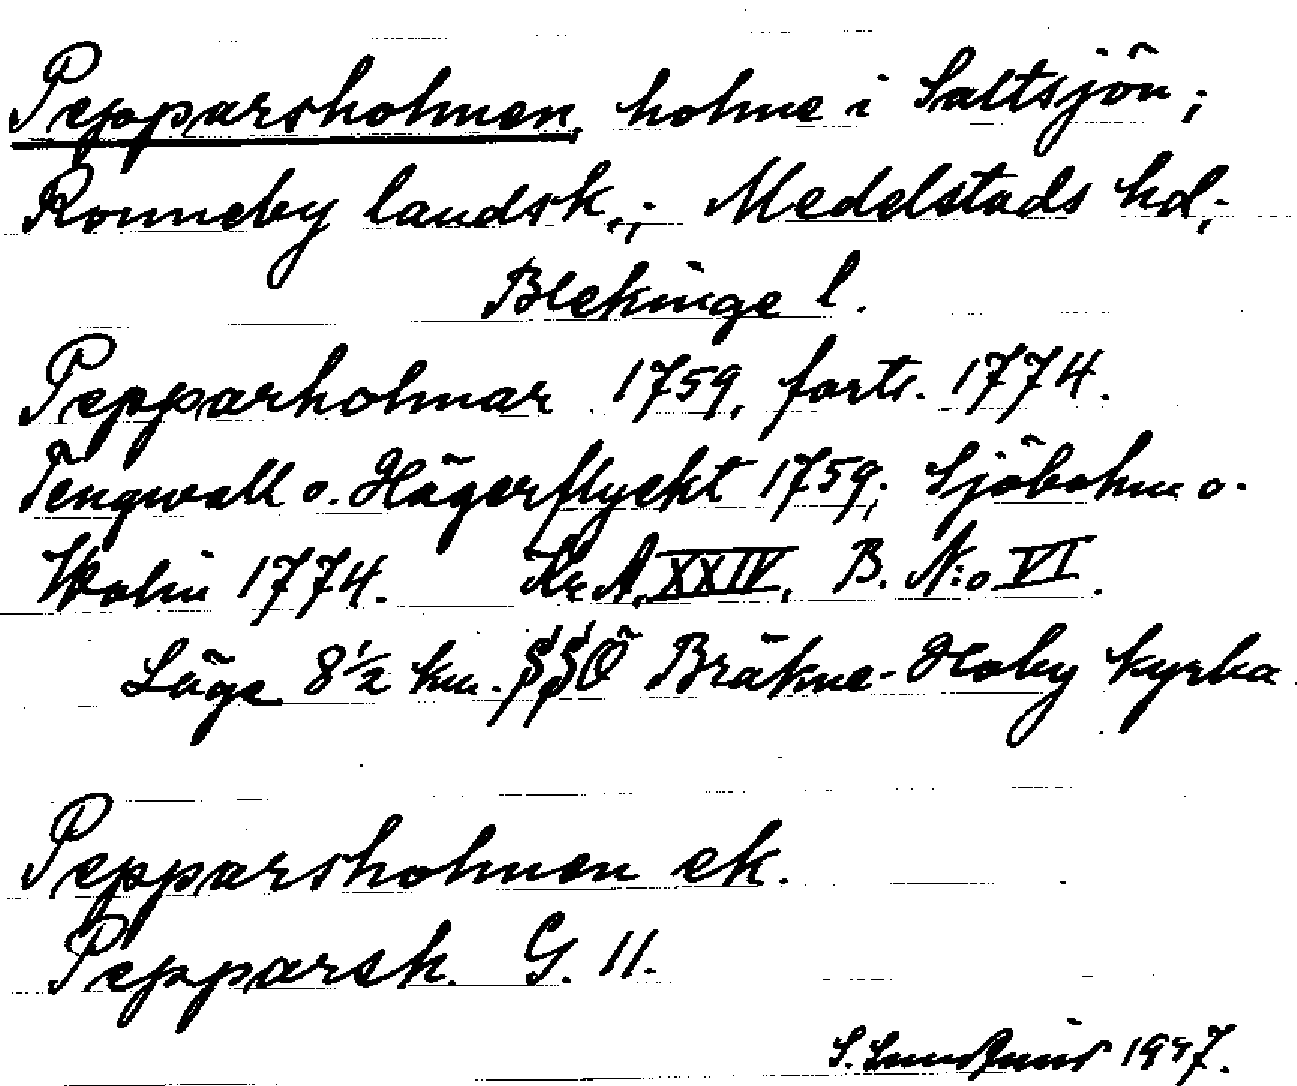 Pepparsholmen, holme i Saltsjön;
Ronneby landsk.; Medelstads hd;
Blekinge l.
Pepparholmar 1759, forts. 1774.
Tengwall o. Hägerflyckt 1759; Sjöbohm o.
Wolin 1774. Kr. A. XXIV. B. N:o VI.
Läge 8½ km. SSÖ Bräkne-Hoby kyrka
Pepparsholmen ek.
Pepparsh. G. 11.
S. 1947.